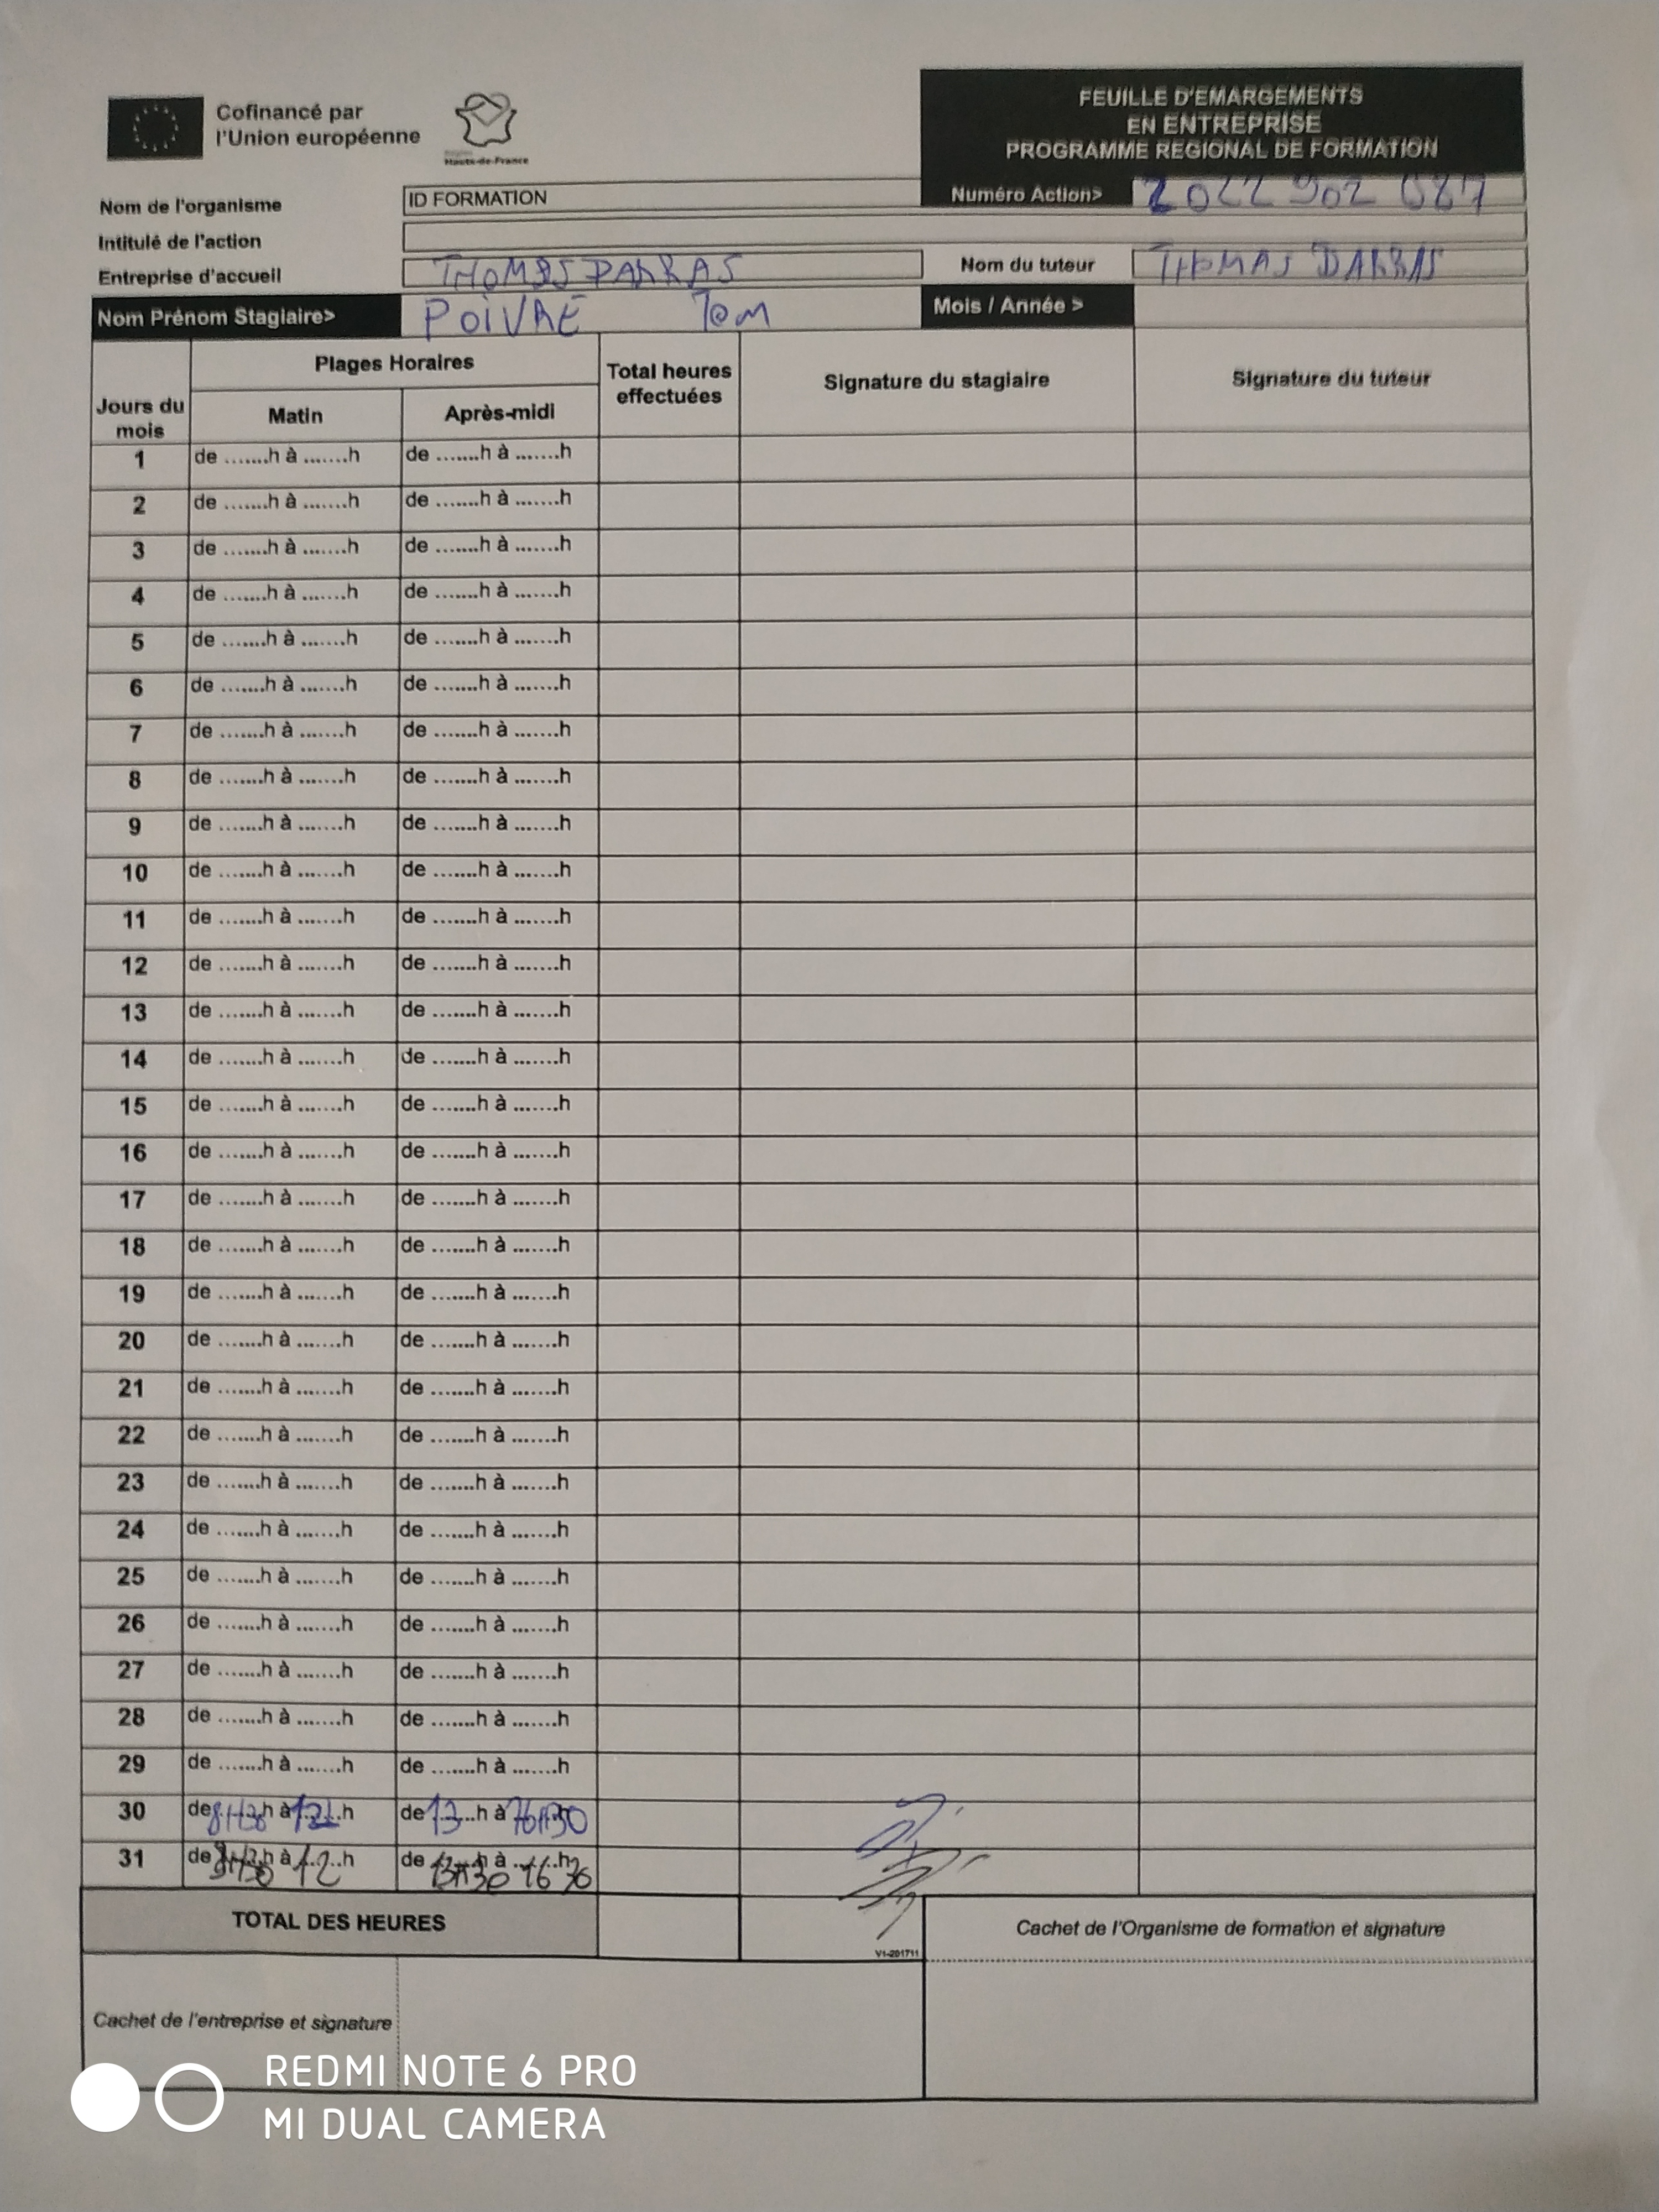 Cofinancé par
l'Union européenne
Région
Hauts-de-France
FEUILLE D'EMARGEMENTS
EN ENTREPRISE
PROGRAMME REGIONAL DE FORMATION
Nom de l'organisme ID FORMATION Numéro Action> 2022 902 087
Intitulé de l'action
Entreprise d'accueil THOMAS DARRAS Nom du tuteur THOMAS DARRAS
Nom Prénom Stagiaire> POIVRE Tom Mois / Année >
Jours du mois Plages Horaires Total heures effectuées Signature du stagiaire Signature du tuteur
Matin Après-midi
1 de .......h à .......h de .......h à .......h
2 de .......h à .......h de .......h à .......h
3 de .......h à .......h de .......h à .......h
4 de .......h à .......h de .......h à .......h
5 de .......h à .......h de .......h à .......h
6 de .......h à .......h de .......h à .......h
7 de .......h à .......h de .......h à .......h
8 de .......h à .......h de .......h à .......h
9 de .......h à .......h de .......h à .......h
10 de .......h à .......h de .......h à .......h
11 de .......h à .......h de .......h à .......h
12 de .......h à .......h de .......h à .......h
13 de .......h à .......h de .......h à .......h
14 de .......h à .......h de .......h à .......h
15 de .......h à .......h de .......h à .......h
16 de .......h à .......h de .......h à .......h
17 de .......h à .......h de .......h à .......h
18 de .......h à .......h de .......h à .......h
19 de .......h à .......h de .......h à .......h
20 de .......h à .......h de .......h à .......h
21 de .......h à .......h de .......h à .......h
22 de .......h à .......h de .......h à .......h
23 de .......h à .......h de .......h à .......h
24 de .......h à .......h de .......h à .......h
25 de .......h à .......h de .......h à .......h
26 de .......h à .......h de .......h à .......h
27 de .......h à .......h de .......h à .......h
28 de .......h à .......h de .......h à .......h
29 de .......h à .......h de .......h à .......h
30 de 8H30 h à 12 h de 13 h à 16H30
31 de h à 12 h de 13H30 h à 16 30 h
TOTAL DES HEURES
V1-201711
Cachet de l'Organisme de formation et signature
Cachet de l'entreprise et signature
REDMI NOTE 6 PRO
MI DUAL CAMERA